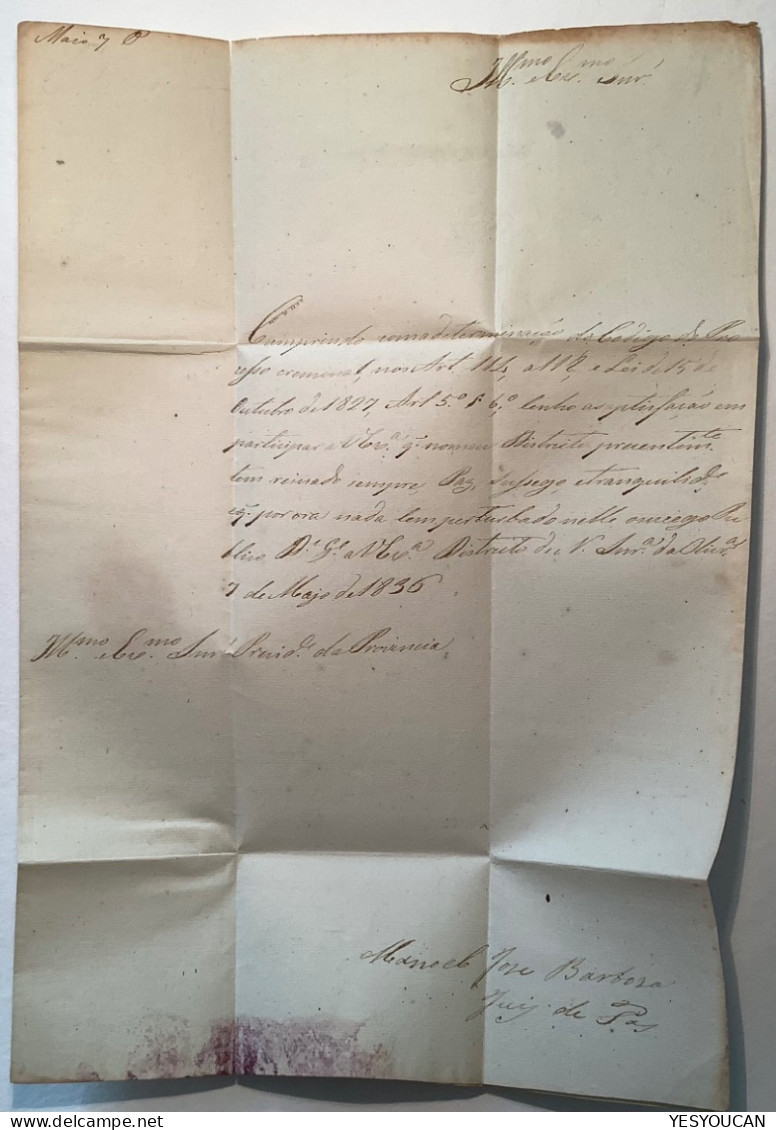 Maio 7 P
Ill.mo e Ex.mo Snr.
Cumprindo com a determinação do Codigo do Pro
cesso cremenal, nos Art. 114, a 118, e Lei de 15 de
Outubro de 1827, Art 5.º § 6,º tenho a satisfação em
participar a V Ex.ª q. no meu Districto prezentem.te
tem reinado sempre Paz, Sussego, e tranquilid.e
q. por ora nada tem perturbado neste o sucego Pu
blico D.s G.e a V Ex.ª Districto de N. Snr.ª da Oliv.ª
7 de Majo de 1836
Ill.mo e Ex.mo Snr. Prezid.e da Provincia
Manoel Jose Barboza
Juiz de Pas
YESYOUCAN